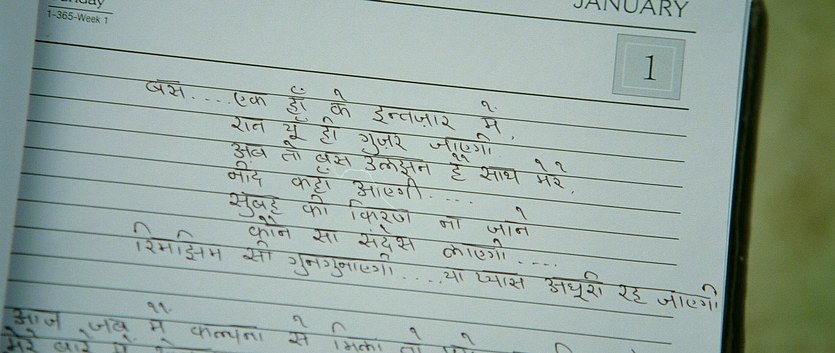 JANUARY
1-365-Week 1
1
बस....एक हाँ के इन्तज़ार में,
रात यूँ ही गुजर जाएगी
अब तो बस उलझन है साथ मेरे,
नींद कहाँ आएगी....
सुबह की किरण ना जाने
कौन सा संदेश लाएगी....
रिमझिम सी गुनगुनाएगी....या प्यास अधूरी रह जाएगी
आज जब मैं कल्पना से मिला तो
मेरे बारे में